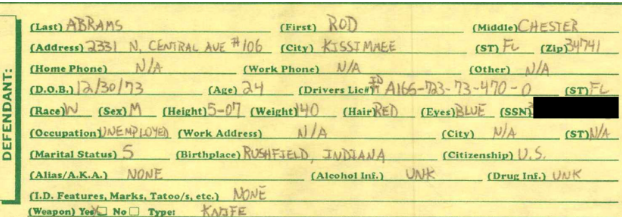 DEFENDANT:
(Last) ABRAMS (First) ROD (Middle) CHESTER
(Address) 2331 N. CENTRAL AVE #106 (City) KISSIMMEE (ST) FL (Zip) 34741
(Home Phone) N/A (Work Phone) N/A (Other) N/A
(D.O.B.) 12/30/73 (Age) 24 (Drivers Lic#) ID# A165-723-73-470-0 (ST) FL
(Race) W (Sex) M (Height) 5-07 (Weight) 140 (Hair) RED (Eyes) BLUE (SSN)
(Occupation) UNEMPLOYED (Work Address) N/A (City) N/A (ST) N/A
(Marital Status) S (Birthplace) RUSHFIELD, INDIANA (Citizenship) U.S.
(Alias/A.K.A.) NONE (Alcohol Inf.) UNK (Drug Inf.) UNK
(I.D. Features, Marks, Tatoo/s, etc.) NONE
(Weapon) Yes No Type: KNIFE